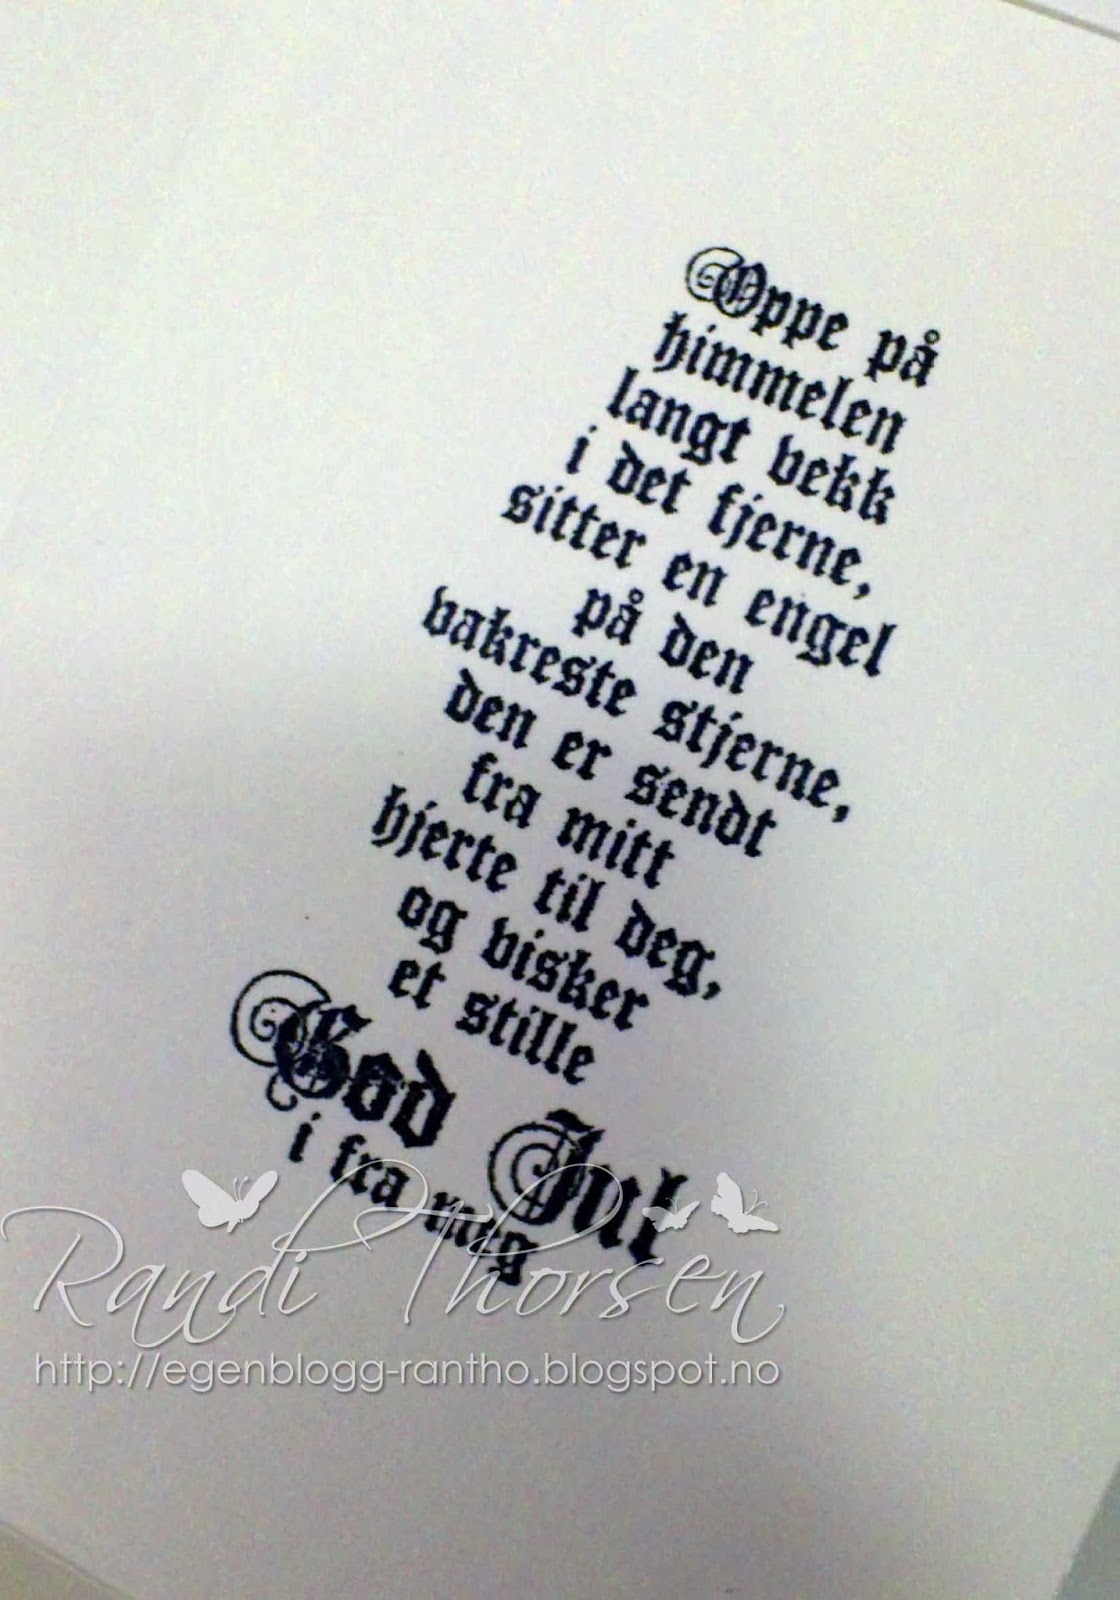 Oppe på
himmelen
langt vekk
i det fjerne,
sitter en engel
på den
vakreste stjerne,
den er sendt
fra mitt
hjerte til deg,
og visker
et stille
God Jul
i fra meg
Randi Thorsen
http://egenblogg-rantho.blogspot.no